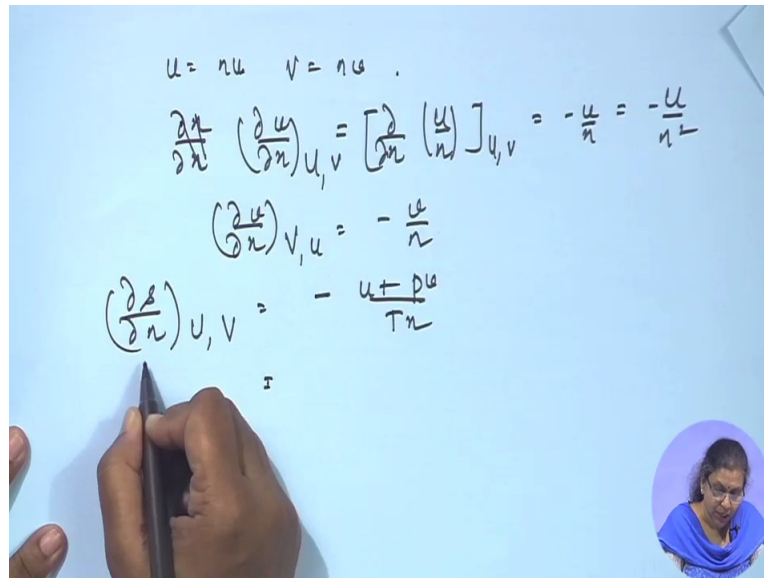 u = nu   v = nv .
∂n/∂n (∂u/∂n)U,V = [∂/∂n (u/n)]U,V = -u/n = -U/n²
(∂v/∂n)V,U = - v/n
(∂s/∂n)U,V = - u + pv / Tn
=